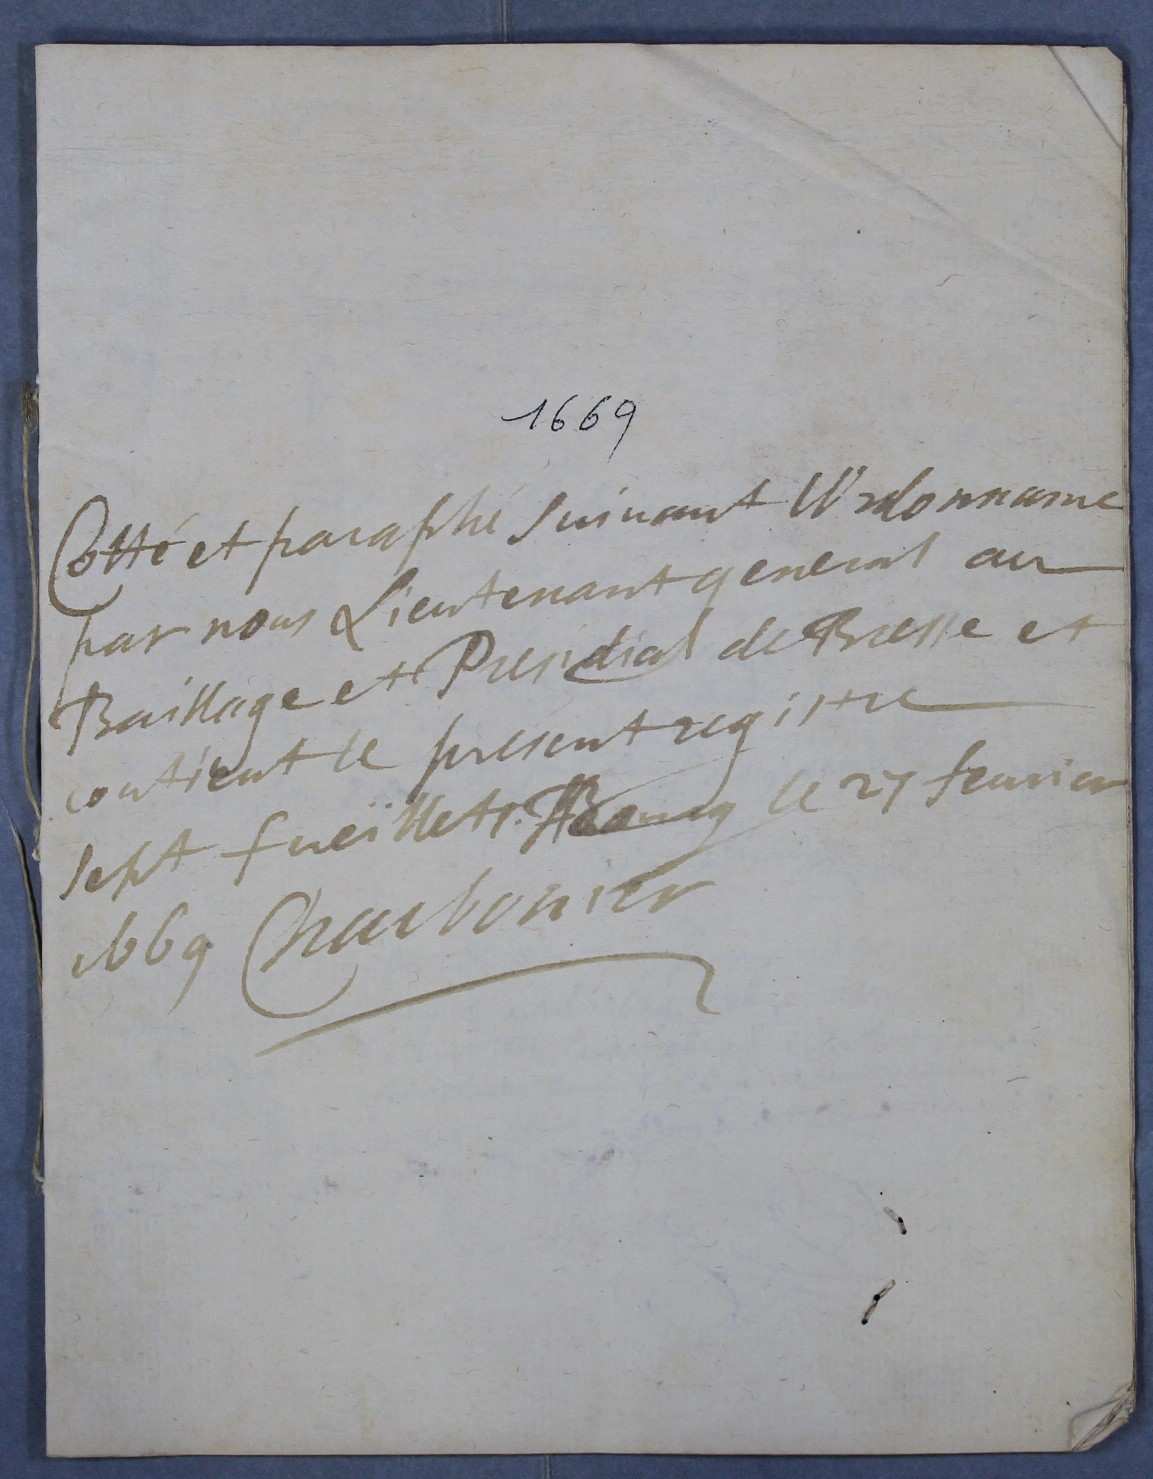 1669
Cotté et paraphé suivant l'ordonnance
par nous Lieutenant general au
Baillage et Presidial de Bresse et
contient le present regystre
sept fueïllets. A Bourg le 27 feurier
1669 Charbonier